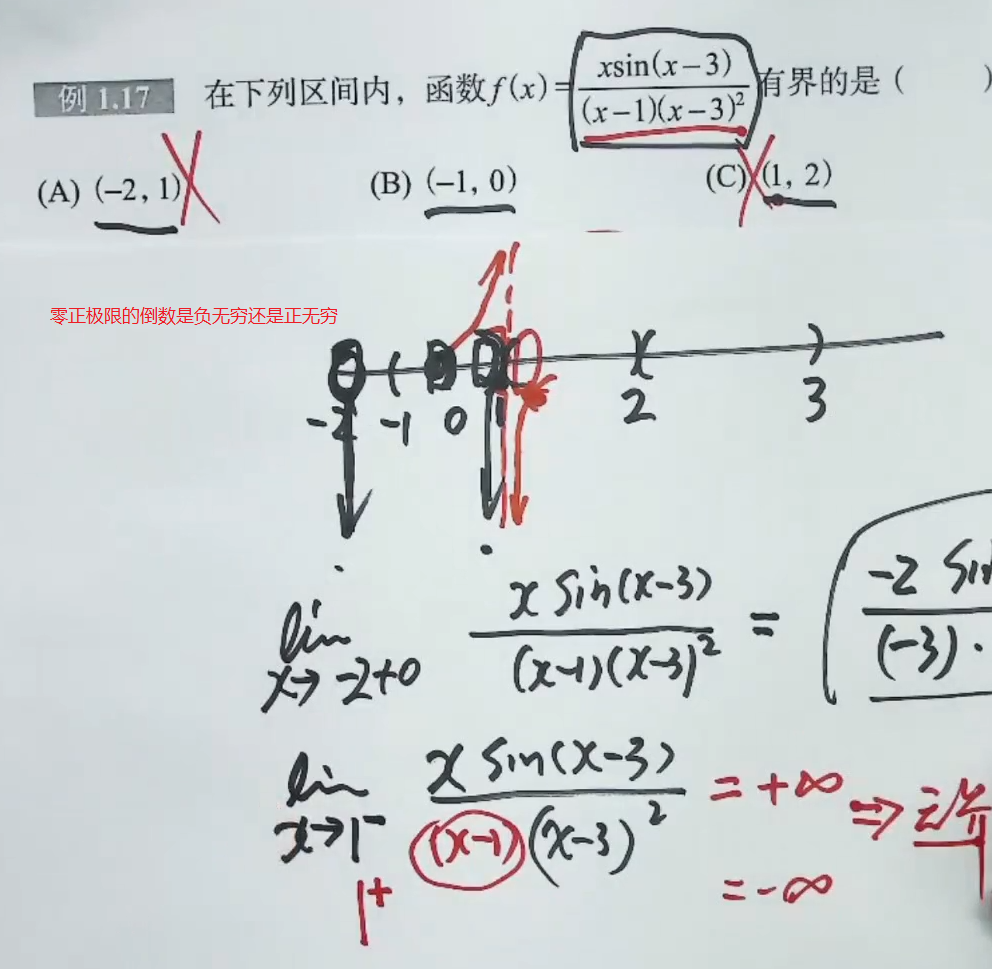 例 1.17 在下列区间内，函数f(x)=xsin(x-3)/(x-1)(x-3)²有界的是（ ）
(A) (-2, 1) (B) (-1, 0) (C) (1, 2)
零正极限的倒数是负无穷还是正无穷
-2 -1 0 1 2 3
lim x→-2+0 x sin(x-3)/(x-1)(x-3)² = -2 sin/(-3)·
lim x→1⁻ x sin(x-3)/(x-1)(x-3)² = +∞ ⇒
1⁺ = -∞